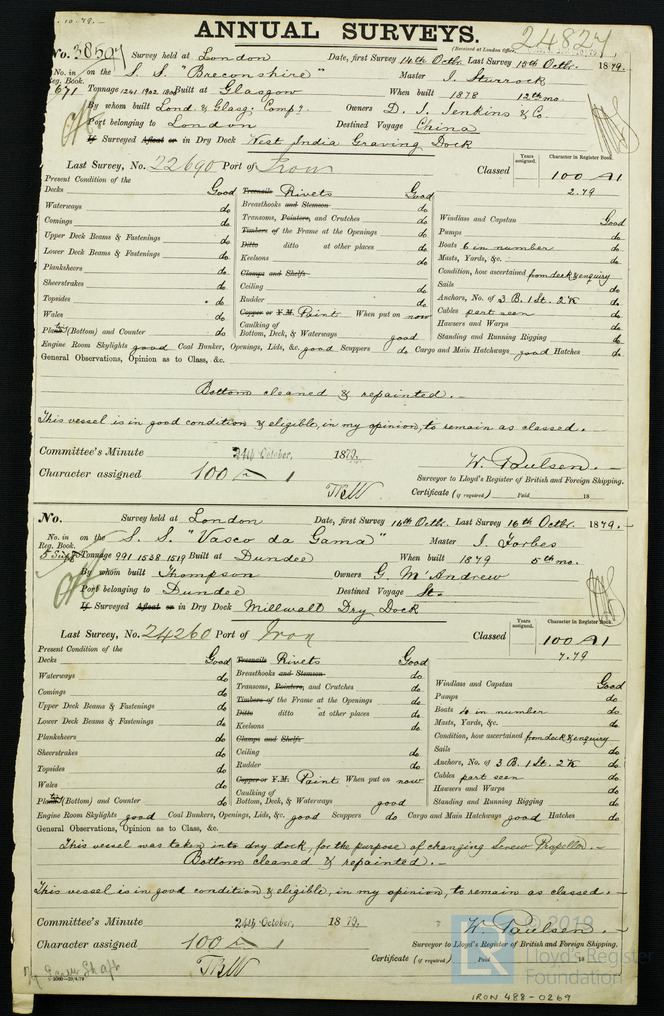 . 10. 79. -
ANNUAL SURVEYS.
24827
(Received at London Office,
No. 38507 Survey held at London Date, first Survey 14th Octbr. Last Survey 15th Octbr. 1879.
No. in on the S. S. "Breconshire" Master J. Sturrock
Reg. Book.
671 Tonnage 1241 1902 Built at Glasgow When built 1878 12th mo.
By whom built Lond. & Glasg: Comp.y. Owners D. J. Jenkins & Co.
Port belonging to London Destined Voyage China
If Surveyed Afloat or in Dry Dock West India Graving Dock
Last Survey, No. 22690 Port of Iron Classed Years assigned. Character in Register Book.
100 A1
2.79
Present Condition of the
Decks Good Treenails Rivets Good
Waterways do Breasthooks and Stemson do
Comings do Transoms, Pointers, and Crutches do Windlass and Capstan Good
Upper Deck Beams & Fastenings do Timbers of the Frame at the Openings do Pumps do
Lower Deck Beams & Fastenings do Ditto ditto at other places do Boats 6 in number do
Planksheers do Keelsons do Masts, Yards, &c. do
Sheerstrakes do Clamps and Shelfs Condition, how ascertained from deck & enquiry
Topsides do Ceiling do Sails do
Wales do Rudder do Anchors, No. of 3 B. 1 St. 2 K do
Plating (Bottom) and Counter do Copper or Y.M. Paint When put on now Cables part seen do
Caulking of Bottom, Deck, & Waterways good Hawsers and Warps do
Standing and Running Rigging do
Engine Room Skylights good Coal Bunker, Openings, Lids, &c. good Scuppers do Cargo and Main Hatchways good Hatches do
General Observations, Opinion as to Class, &c.
Bottom cleaned & repainted. -
This vessel is in good condition & eligible, in my opinion, to remain as classed. -
Committee's Minute 24th October, 1879.
Character assigned 100 A 1
W. Paulsen. -
Surveyor to Lloyd's Register of British and Foreign Shipping.
TBW Certificate (if required) Paid 18
No. Survey held at London Date, first Survey 16th Octbr. Last Survey 16th Octbr. 1879. -
No. in on the S. S. "Vasco da Gama" Master J. Forbes
Reg. Book.
Tonnage 991 1538 1519 Built at Dundee When built 1879 5th mo.
By whom built Thompson Owners G. McAndrew
Port belonging to Dundee Destined Voyage St.
If Surveyed Afloat or in Dry Dock Millwall Dry Dock
Last Survey, No. 24260 Port of Iron Classed Years assigned. Character in Register Book.
100 A1
7.79
Present Condition of the
Decks Good Treenails Rivets Good
Waterways do Breasthooks and Stemson do
Comings do Transoms, Pointers, and Crutches do Windlass and Capstan Good
Upper Deck Beams & Fastenings do Timbers of the Frame at the Openings do Pumps do
Lower Deck Beams & Fastenings do Ditto ditto at other places do Boats in number do
Planksheers do Keelsons do Masts, Yards, &c. do
Sheerstrakes do Clamps and Shelfs Condition, how ascertained from deck & enquiry
Topsides do Ceiling do Sails do
Wales do Rudder do Anchors, No. of 3 B. 1 St. 2 K do
Plating (Bottom) and Counter do Copper or Y.M. Paint When put on now Cables part seen do
Caulking of Bottom, Deck, & Waterways good Hawsers and Warps do
Standing and Running Rigging do
Engine Room Skylights good Coal Bunkers, Openings, Lids, &c. good Scuppers do Cargo and Main Hatchways good Hatches do
General Observations, Opinion as to Class, &c.
This vessel was taken into dry dock, for the purpose of changing Screw Propellor. -
Bottom cleaned & repainted. -
This vessel is in good condition & eligible, in my opinion, to remain as classed. -
Committee's Minute 24th October, 1879.
Character assigned 100 A 1
W. Paulsen. -
Surveyor to Lloyd's Register of British and Foreign Shipping.
TBW Certificate (if required) Paid 18
Screw Shaft
© 2019
LR
Lloyd's Register
Foundation
IRON 488-0269